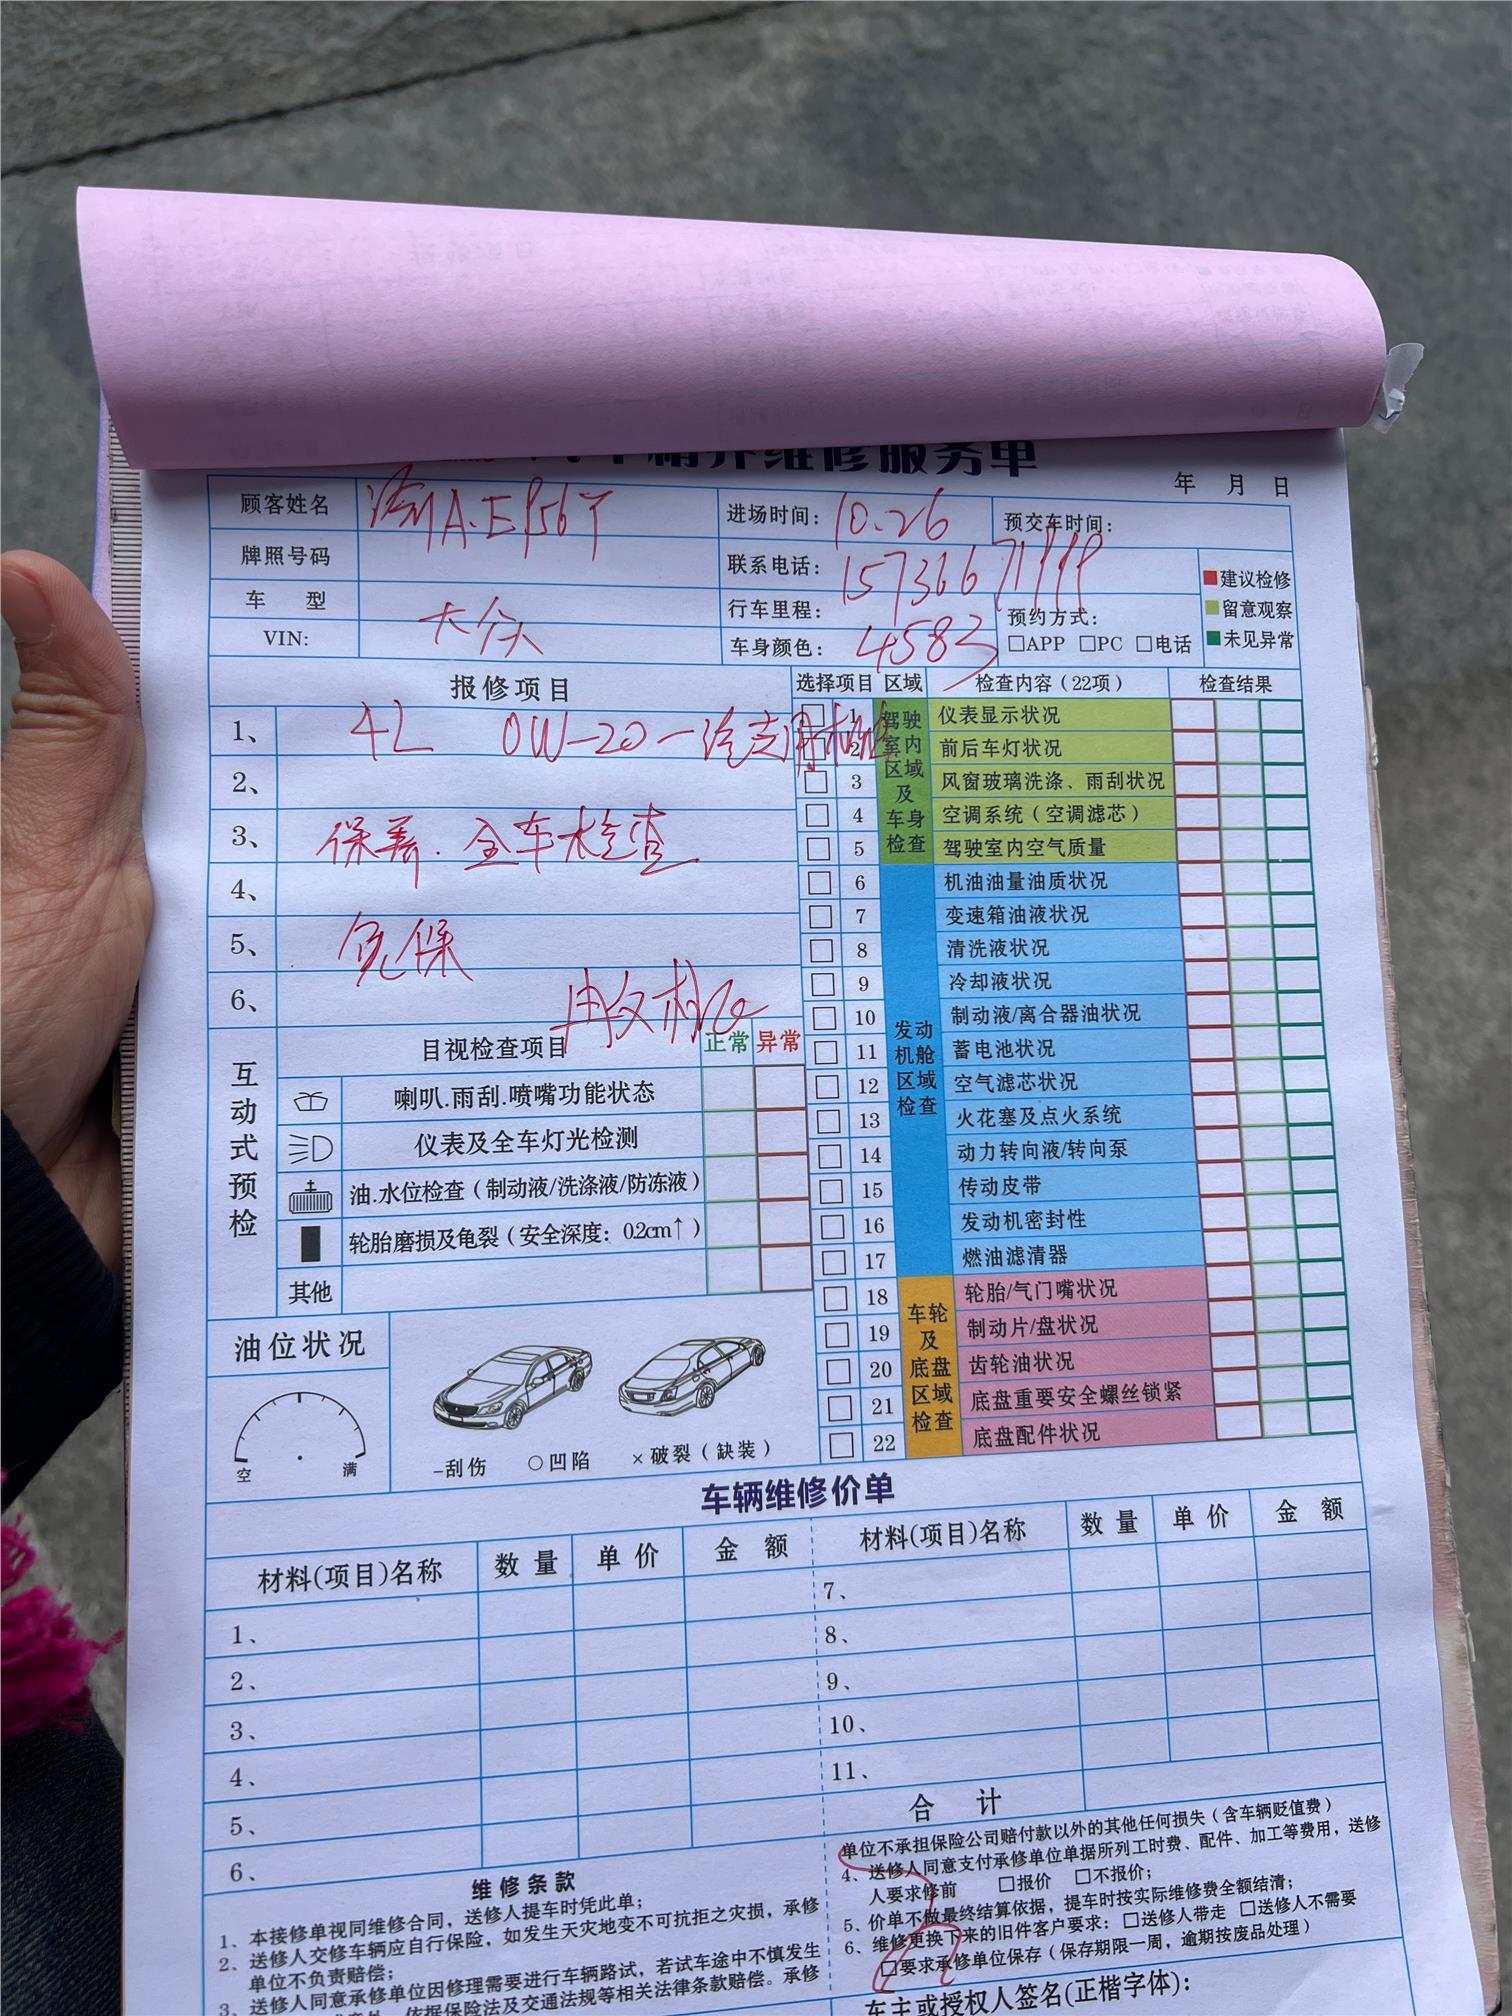 精养维修服务单
年 月 日
顾客姓名 渝A·E956Y 进场时间: 10.26 预交车时间:
牌照号码 联系电话: 15736671999
车 型 大众 行车里程: 4583 预约方式:
VIN: 车身颜色: □APP □PC □电话
建议检修
留意观察
未见异常
报修项目
1、 4L 0W-20 一汽专用机油
2、
3、 保养. 全车检查
4、
5、 免保
6、
互动式预检
目视检查项目 正常 异常
喇叭.雨刮.喷嘴功能状态
仪表及全车灯光检测
油.水位检查(制动液/洗涤液/防冻液)
轮胎磨损及龟裂(安全深度: 0.2cm↑)
其他
油位状况
空 满
-刮伤 ○凹陷 ×破裂(缺装)
选择项目 区域 检查内容(22项) 检查结果
驾驶室内区域及车身检查
1 仪表显示状况
2 前后车灯状况
3 风窗玻璃洗涤、雨刮状况
4 空调系统(空调滤芯)
5 驾驶室内空气质量
发动机舱区域检查
6 机油油量油质状况
7 变速箱油液状况
8 清洗液状况
9 冷却液状况
10 制动液/离合器油状况
11 蓄电池状况
12 空气滤芯状况
13 火花塞及点火系统
14 动力转向液/转向泵
15 传动皮带
16 发动机密封性
17 燃油滤清器
车轮及底盘区域检查
18 轮胎/气门嘴状况
19 制动片/盘状况
20 齿轮油状况
21 底盘重要安全螺丝锁紧
22 底盘配件状况
车辆维修价单
材料(项目)名称 数量 单价 金额 材料(项目)名称 数量 单价 金额
1、 7、
2、 8、
3、 9、
4、 10、
5、 11、
6、 合 计
维修条款
1、本接修单视同维修合同，送修人提车时凭此单；
2、送修人交修车辆应自行保险，如发生天灾地变不可抗拒之灾损，承修
单位不负责赔偿；
3、送修人同意承修单位因修理需要进行车辆路试，若试车途中不慎发生
依据保险法及交通法规等相关法律条款赔偿。承修
单位不承担保险公司赔付款以外的其他任何损失(含车辆贬值费)
4、送修人同意支付承修单位单据所列工时费、配件、加工等费用，送修
人要求修前 □报价 □不报价；
5、价单不做最终结算依据，提车时按实际维修费全额结清；
6、维修更换下来的旧件客户要求: □送修人带走 □送修人不需要
□要求承修单位保存(保存期限一周，逾期按废品处理)
车主或授权人签名(正楷字体):